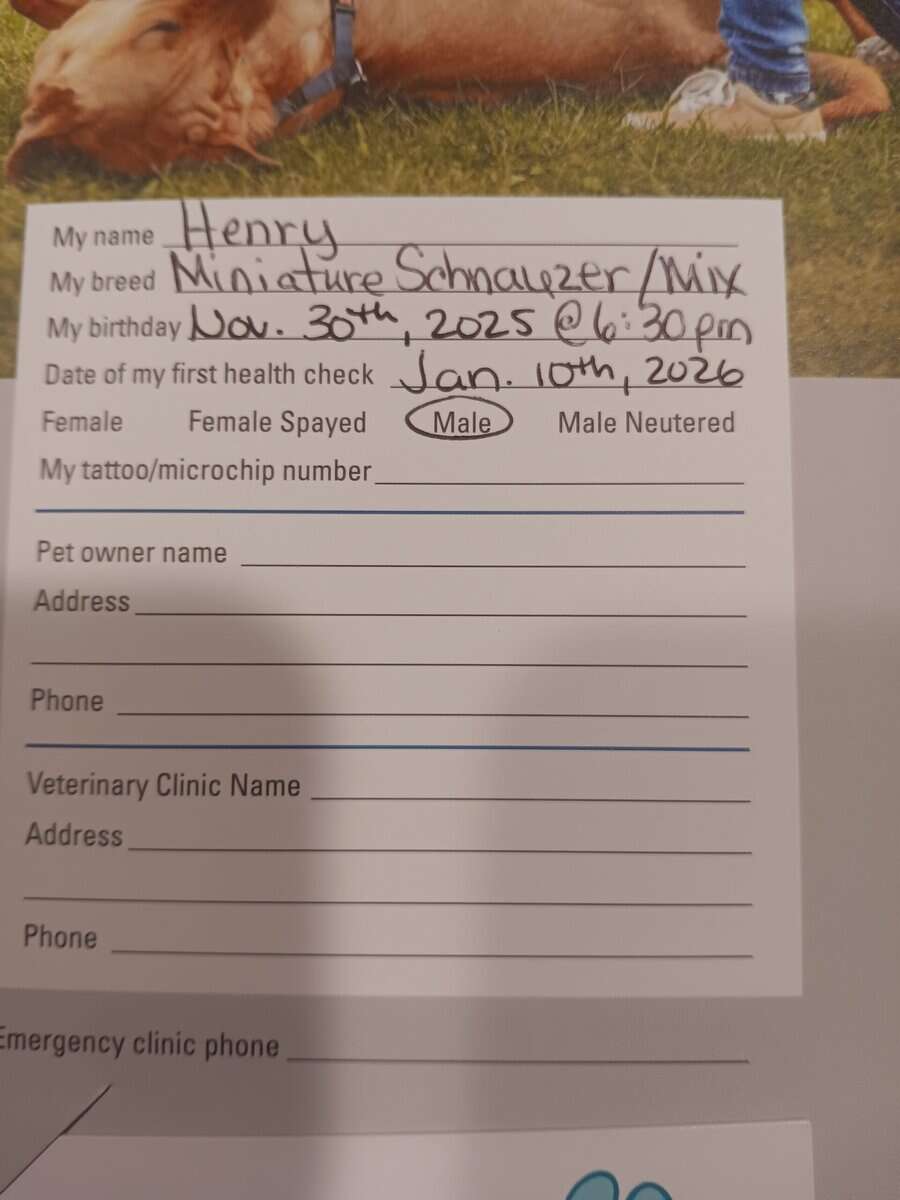 My name Henry
My breed Miniature Schnauzer/Mix
My birthday Nov. 30th, 2025 @ 6:30pm
Date of my first health check Jan. 10th, 2026
Female Female Spayed Male Male Neutered
My tattoo/microchip number
Pet owner name
Address
Phone
Veterinary Clinic Name
Address
Phone
Emergency clinic phone